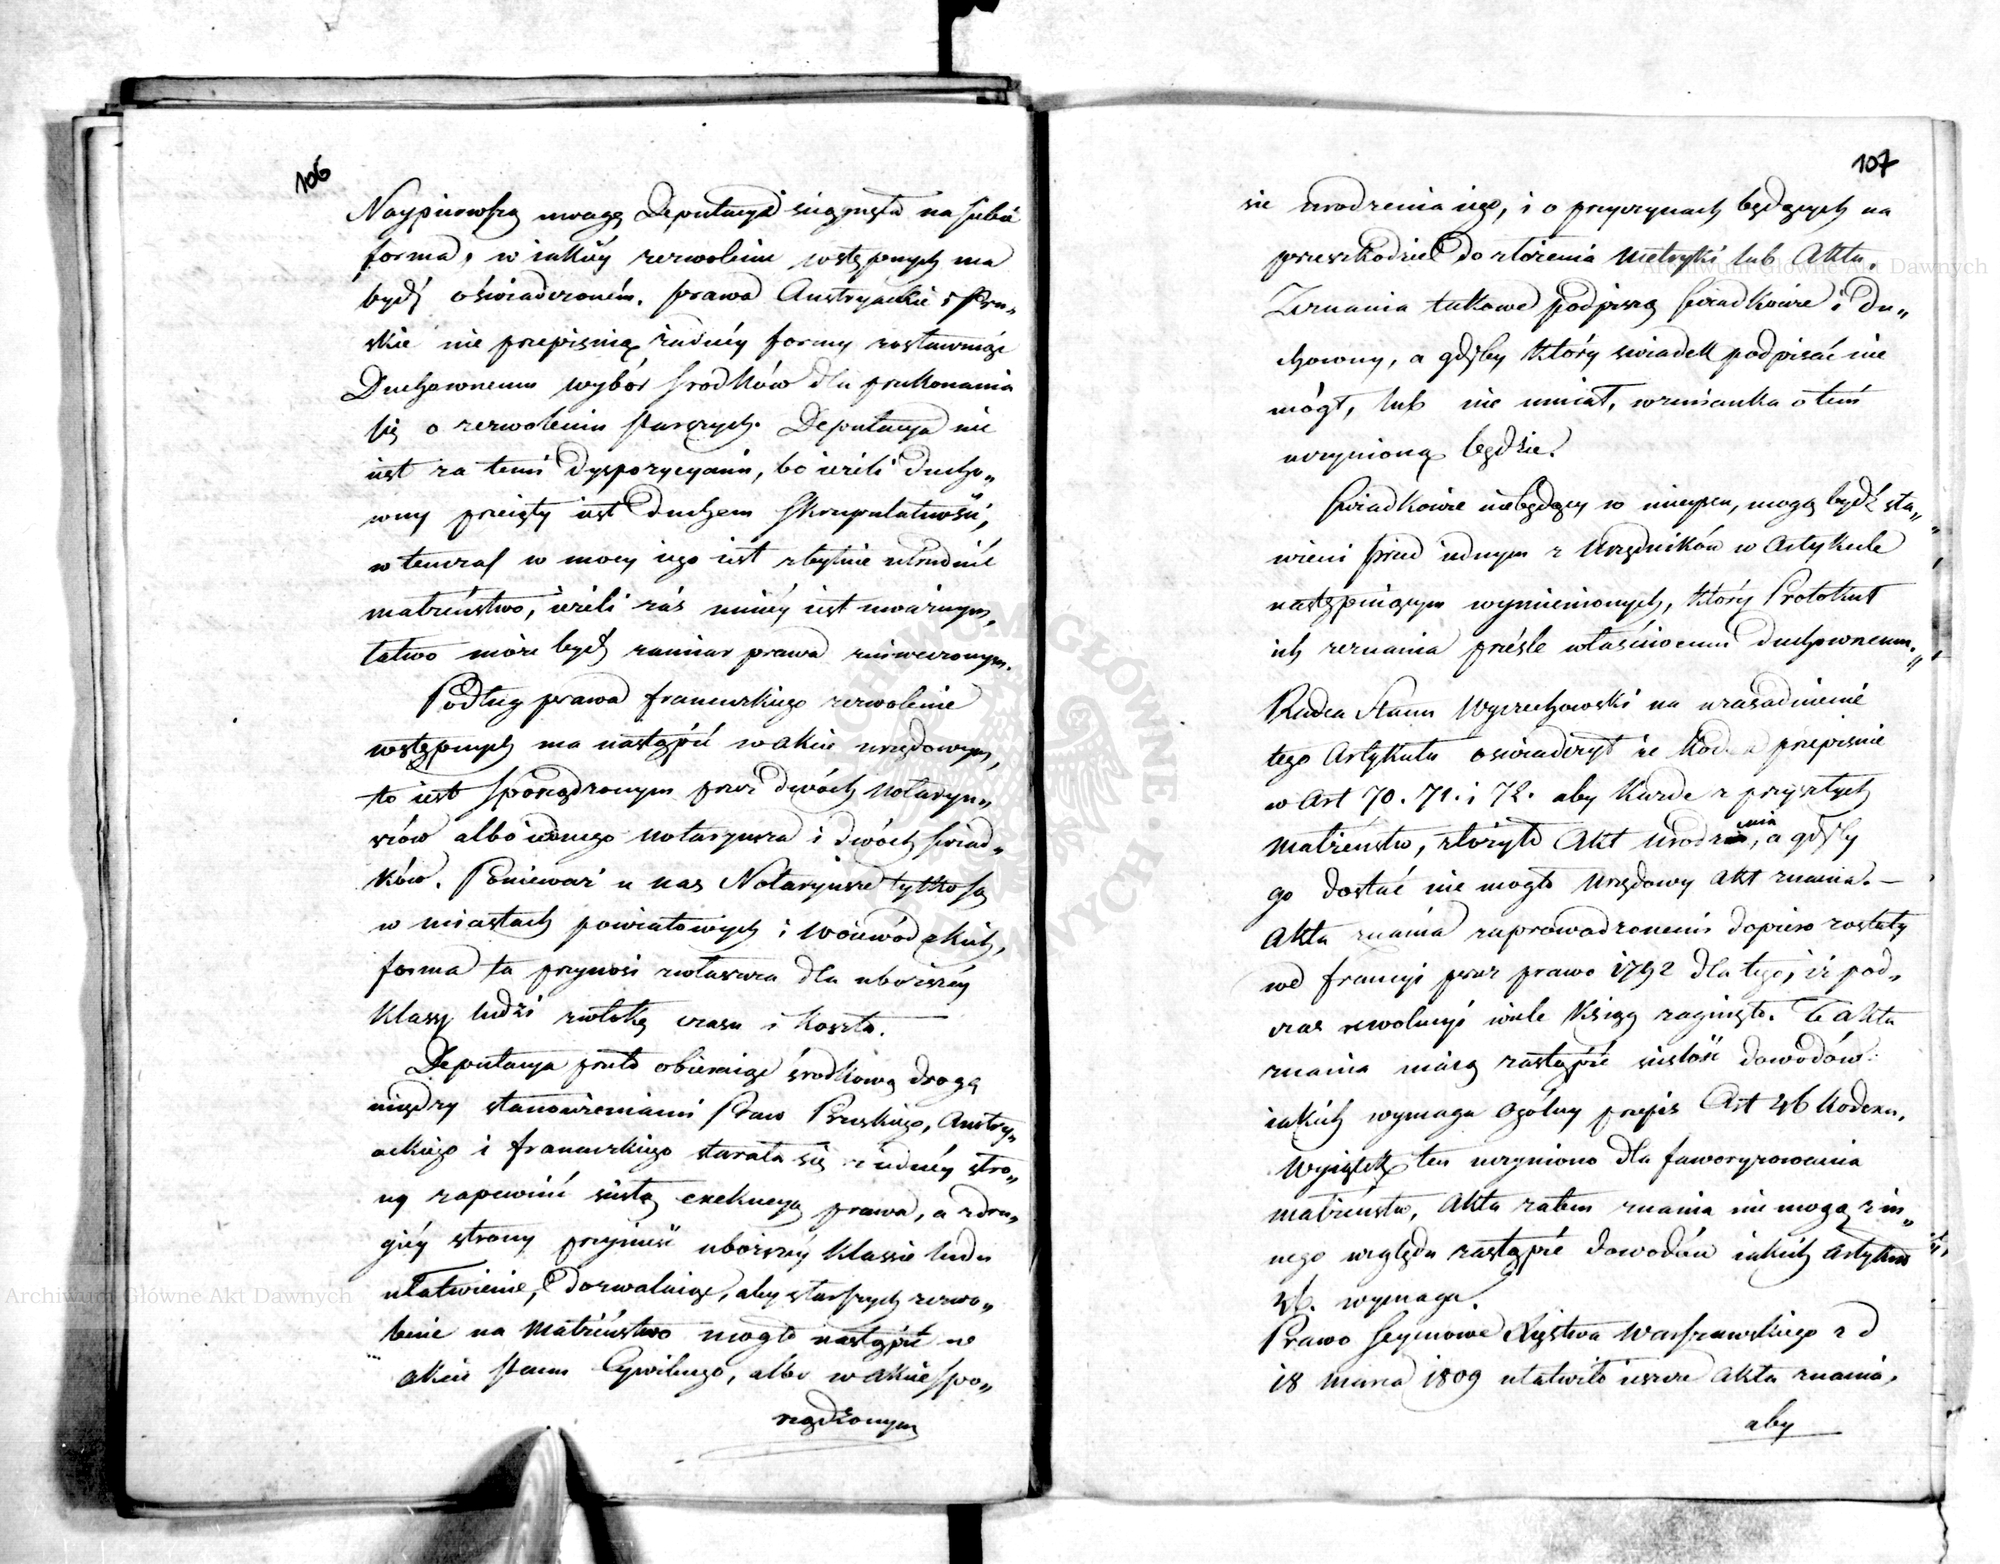 106
Naypierwszą uwagę Deputacyi ściągnęła na siebie
forma, w iakiéy zezwolenie wstępnych ma
bydź oświadczoném. Prawa Austryackie i Pru„
skie nie przepisuią żadnéy formy zostawuiąc
Duchownemu wybór środków dla przekonania
się o zezwoleniu starszych. Deputacya nie
iest za temi dyspozycyami, bo ieżeli Ducho„
wny przeięty iest duchem skrupulatności,
w tenczas w mocy iego iest zbytnie utrudnić
małżeństwo, ieżeli zaś mniéy iest uważnym,
łatwo może bydź zamiar prawa zniweczonym.
Podług prawa francuzkiego zezwolenie
wstępnych ma nastąpić w akcie urzędowym,
to iest sporządzonym przez dwóch Notaryu„
szów albo iednego Notaryusza i dwóch świad„
ków. Ponieważ u nas Notaryusze tylko są
w miastach powiatowych i Woiewódzkich,
forma ta przynosi zwłaszcza dla uboższéy
klassy ludzi zwłokę czasu i koszta.
Deputacya przeto obieraiąc środkową drogę
między stanowieniami Praw Pruskiego, Austry„
ackiego i francuzkiego starała się z iednéy stro„
ny zapewnić ścisłą exekucyą prawa, a z dru„
giéy strony przynieść uboższéy klassie ludu
ułatwienie, dozwalaiąc, aby starszych zezwo„
lenie na Małżeństwo mogło nastąpić w
akcie stanu Cywilnego, albo w akcie spo„
rządzonym
107
sie urodzenia iego, i o przyczynach będących na
przeszkodzie do złożenia Metryki lub Aktu.
Zeznania takowe podpiszą świadkowie i du„
chowny, a gdyby który świadek podpisać nie
mógł, lub nie umiał, wzmianka o tem
uczynioną będzie.
Świadkowie niebędący w mieyscu, mogą bydź sta„
wieni przed iednym z Urzędników w Artykule
następuiącym wymienionych, który Protokuł
ich zeznania prześle właściwemu Duchownemu.„
Radca Stanu Wyczechowski na uzasadnienie
tego Artykułu oświadczył że Kodex przepisuie
w Art 70. 71. i 72. aby każde z przyszłych
Małżeństw, złożyło Akt urodzenia, a gdyby
go dostać nie mogło Urzędowy Akt znania. —
Akta znania zaprowadzonemi dopiero zostały
we francyi przez prawo 1792 dla tego, iż pod„
czas rewolucyi wiele Ksiąg zaginęło. Te akta
znania maią zastąpić ścisłość dowodów
iakich wymaga ogólny przepis Art 46 Kodexu.
Wyiątek ten uczyniono dla faworyzowania
Małżeństw, Akta zatem znania nie mogą z in„
nego względu zastąpić dowodów iakich Artykuł
46. wymaga.
Prawo Seymowe Xięstwa Warszawskiego z d
18 Marca 1809 ułatwiło ieszcze Akta znania,
aby